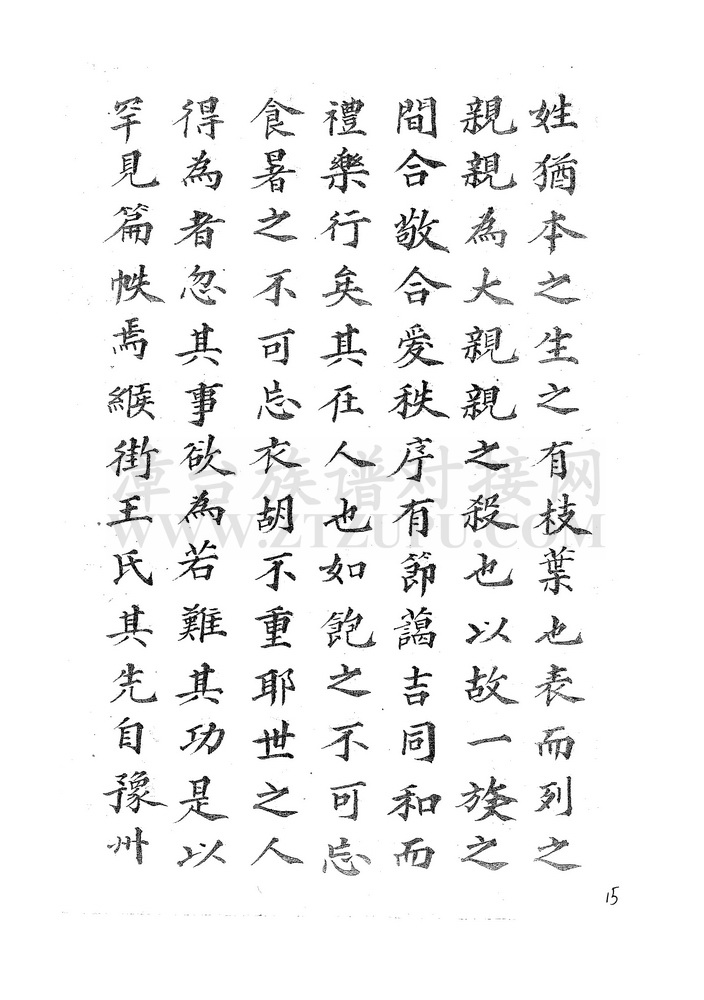 姓猶本之生之有枝葉也表而列之
親親為大親親之殺也以故一族之
間合敬合愛秩序有節藹吉同和而
禮樂行矣其在人也如飽之不可忘
食暑之不可忘衣胡不重耶世之人
得為者忽其事欲為若難其功是以
罕見篇帙焉緱街王氏其先自豫州
漳台族谱对接网
WWW.ZTZUPU.COM
15